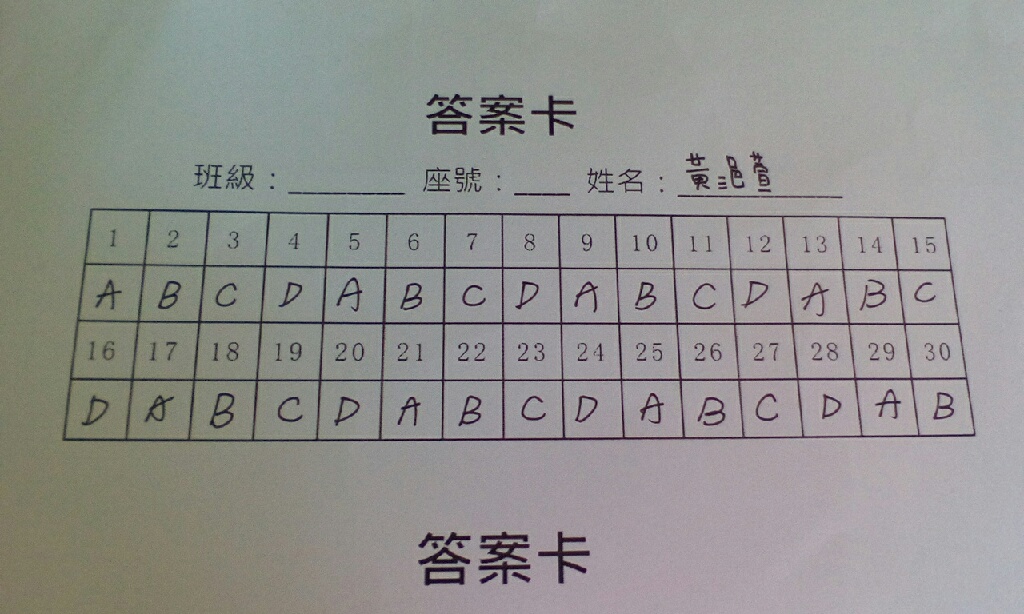 答案卡
班級：________ 座號：____ 姓名：黃浥萱
1 2 3 4 5 6 7 8 9 10 11 12 13 14 15
A B C D A B C D A B C D A B C
16 17 18 19 20 21 22 23 24 25 26 27 28 29 30
D A B C D A B C D A B C D A B
答案卡